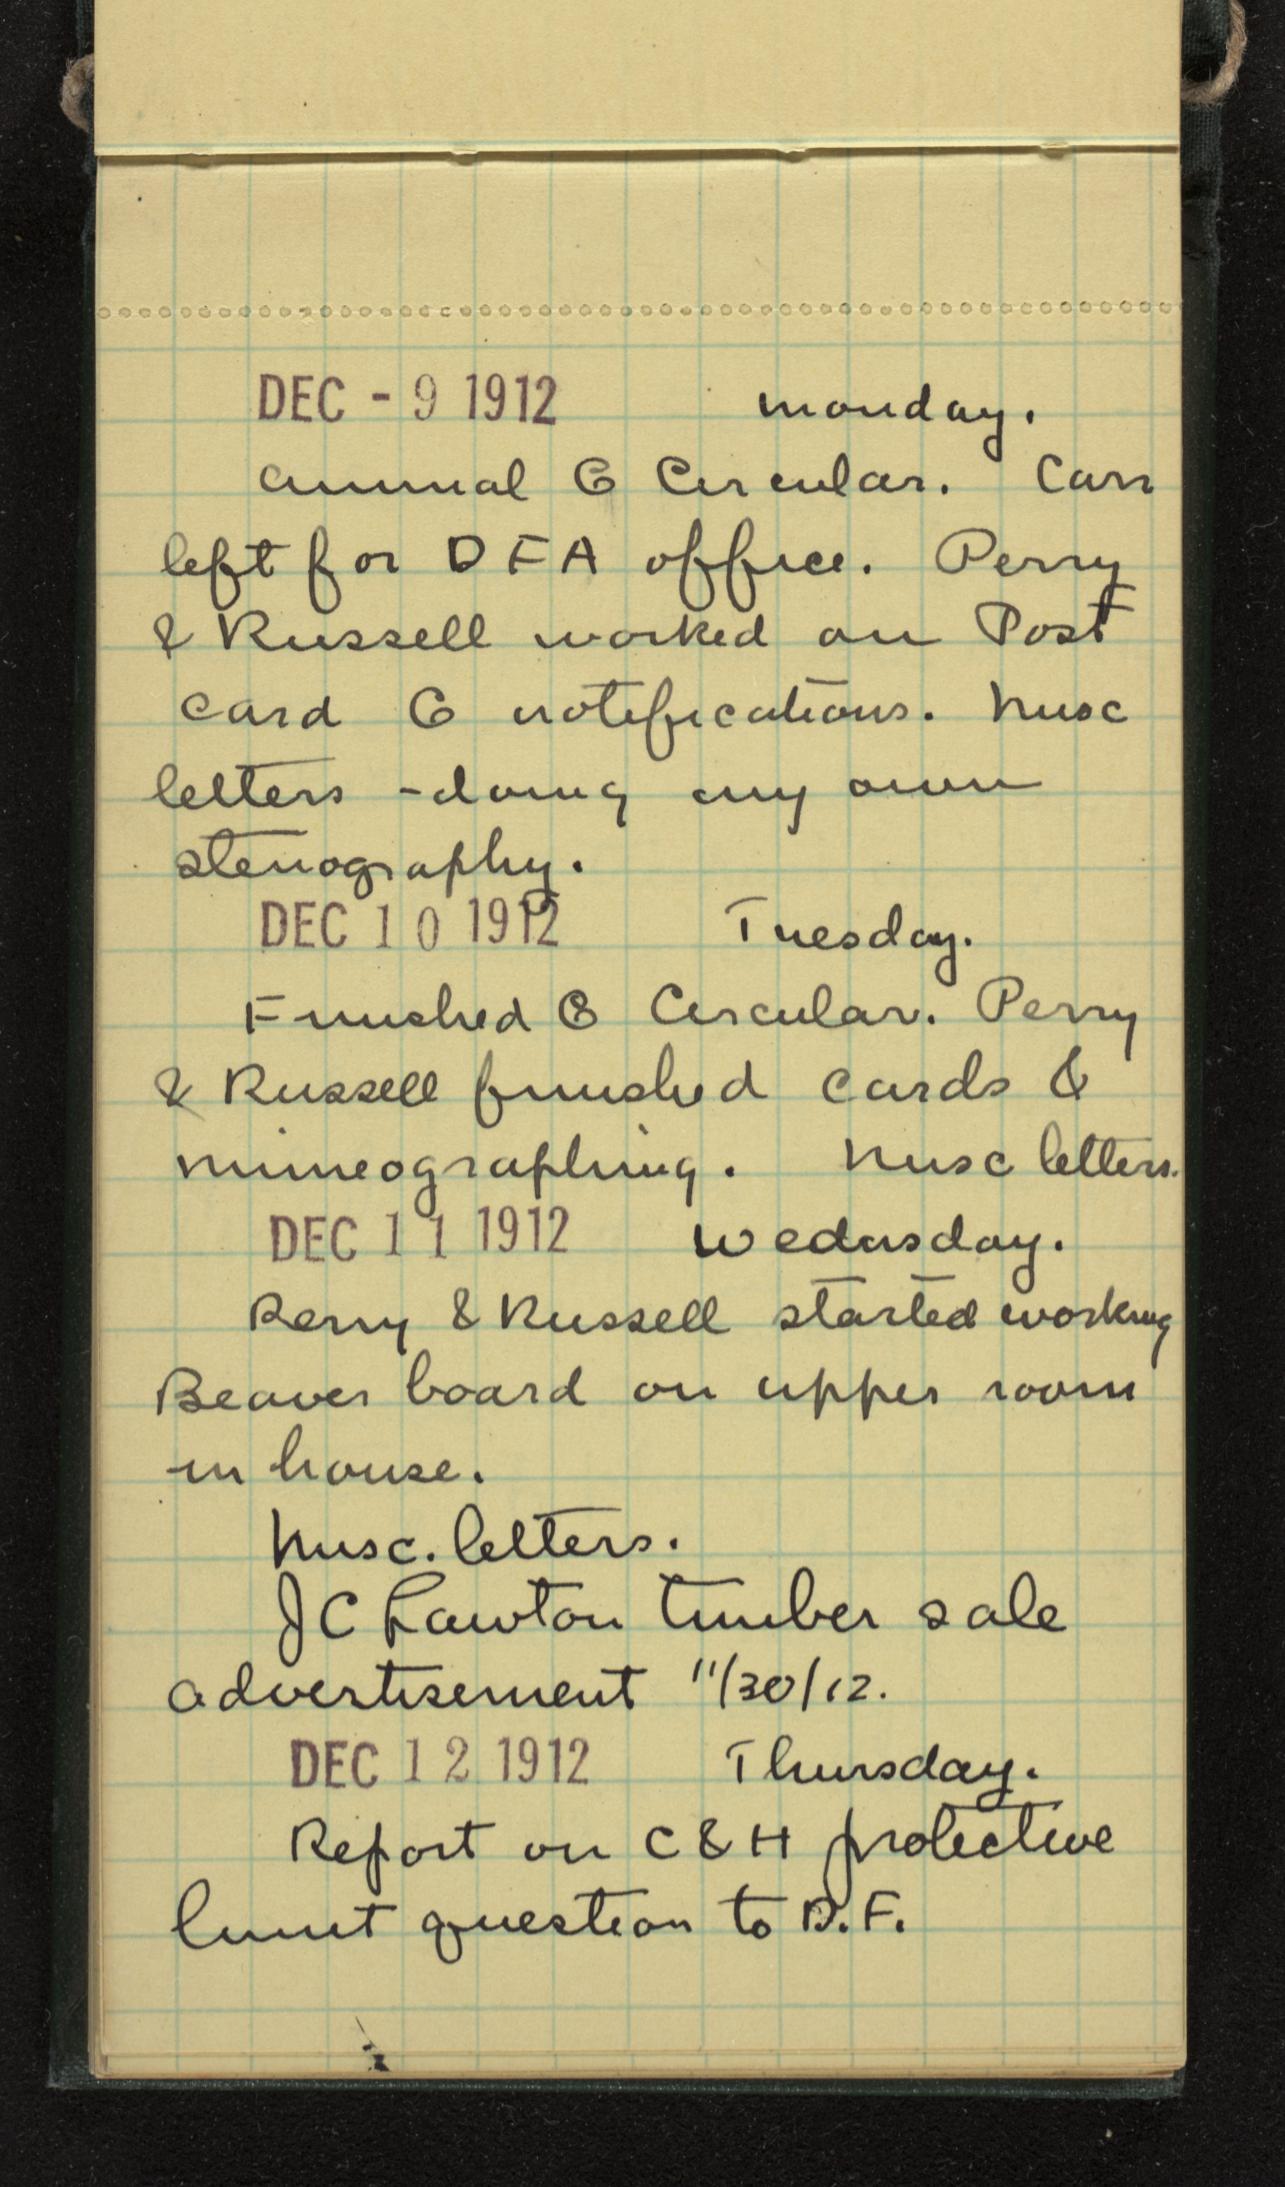 DEC - 9 1912 Monday.
Annual G Circular. Carr
left for D F A office. Perry
& Russell worked on Post
card G notifications. Misc
letters - doing my own
stenography.
DEC 10 1912 Tuesday.
Finished G Circular. Perry
& Russell finished cards &
mimeographing. Misc letters.
DEC 11 1912 Wednsday.
Perry & Russell started working
Beaver board on upper room
in house.
Misc. letters.
J C Lawton timber sale
advertisement 11/30/12.
DEC 12 1912 Thursday.
Report on C & H protective
limit question to D.F.